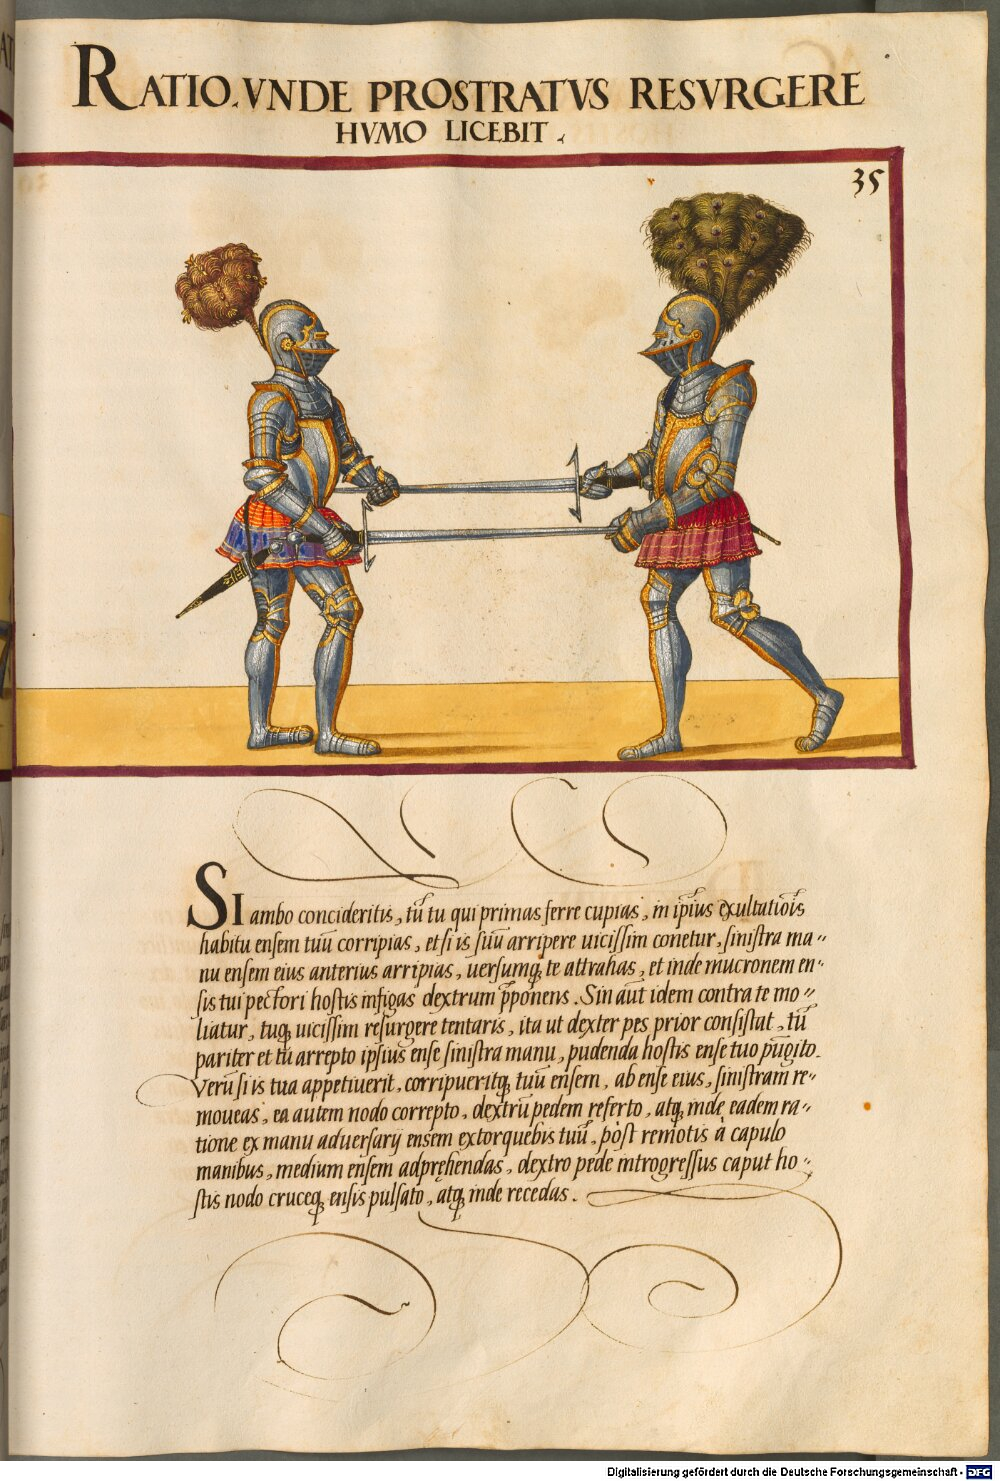 RATIO, VNDE PROSTRATVS RESVRGERE
HVMO LICEBIT.
35
SI ambo concideritis, tũ tu qui primas ferre cupias, in ip̃ius exultatiõis
habitu ensem tuũ corripias, et si is suũ arripere uicissim conetur, sinistra ma„
nu ensem eius anterius arripias, uersumq; te attrahas, et inde mucronem en„
sis tui pectori hostis infigas dextrum p̃ponens. Sin aũt idem contra te mo„
liatur, tuq; uicissim resurgere tentaris, ita ut dexter pes prior consistat, tũ
pariter et tu arrepto ipsius ense sinistra manu, pudenda hostis ense tuo pũgito.
Verũ si is tua appetiuerit, corripueritq; tuũ ensem, ab ense eius, sinistram re„
moueas, ea autem nodo correpto, dextrũ pedem referto, atq; inde, eadem ra„
tione ex manu aduersarij ensem extorquebis tuũ, pòst remotis à capulo
manibus, medium ensem adpręhendas, dextro pede introgressus caput ho„
stis nodo cruceq; ensis pulsato, atq; inde recedas.
Digitalisierung gefördert durch die Deutsche Forschungsgemeinschaft - DFG